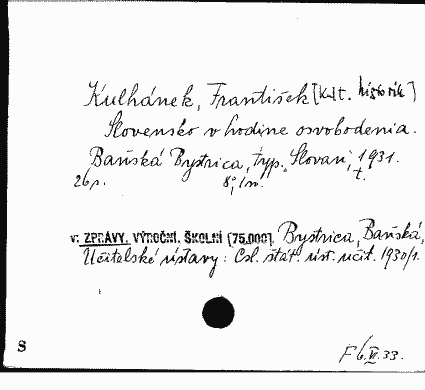 Kulhánek, František [kult. historik]
Slovensko v hodine osvobodenia.
Baňská Bystrica, typ. "Slovan", 1931.
26 p. 8°, 1 n. t.
v: ZPRÁVY. VÝROČNÍ. ŠKOLNÍ (75.000). Bystrica, Baňská,
Učitelské ústavy: Csl. stát. úst. učit. 1930/1.
S
F 6.VI.33.